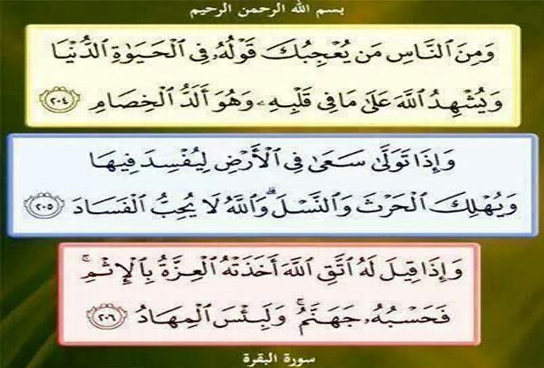 بسم الله الرحمن الرحيم
وَمِنَ ٱلنَّاسِ مَن يُعْجِبُكَ قَوْلُهُۥ فِى ٱلْحَيَوٰةِ ٱلدُّنْيَا
وَيُشْهِدُ ٱللَّهَ عَلَىٰ مَا فِى قَلْبِهِۦ وَهُوَ أَلَدُّ ٱلْخِصَامِ ٢٠٤
وَإِذَا تَوَلَّىٰ سَعَىٰ فِى ٱلْأَرْضِ لِيُفْسِدَ فِيهَا
وَيُهْلِكَ ٱلْحَرْثَ وَٱلنَّسْلَ ۗ وَٱللَّهُ لَا يُحِبُّ ٱلْفَسَادَ ٢٠٥
وَإِذَا قِيلَ لَهُ ٱتَّقِ ٱللَّهَ أَخَذَتْهُ ٱلْعِزَّةُ بِٱلْإِثْمِ ۚ
فَحَسْبُهُۥ جَهَنَّمُ ۚ وَلَبِئْسَ ٱلْمِهَادُ ٢٠٦
سورة البقرة